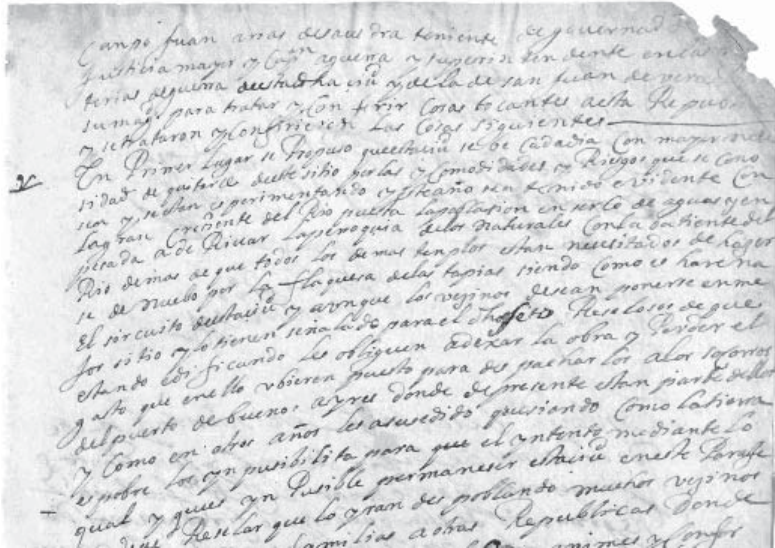 Campo Juan arias de saavedra teniente de governad
Justicia mayor y Capn aguerra y superintendente en las
terias de guerra desta dha ciud y de la de san Juan de vera
para tratar y Conferir Cosas tocantes a esta Repub
y se trataron y Confirieron las Cosas siguientes
En Primer lugar se Propuso que esta ciud se be Cada dia Con mayor nece
sidad de mudarse deste sitio por las yncomodidades y Riesgos que se cono
sen y se estan esperimentando y este año sean tenido evidente Con
la gran Creciente del Rio puesta la poblasion en serco de aguas y en
pesada a deRivar la peroquia de los naturales Con la batiente del
Rio demas de que todos los demas templos estan necesitados de hazer
se de nuebo por la flaquesa de las tapias siendo Como es harena
El sircuito desta ciud y aunque los vezinos desean ponerse en me
Jor sitio y lo tienen señalado para el dho efeto Reselosos de que
estando edificando les obliguen adexar la obra y Perder el
gasto que en ello ubieren puesto para despachar los a los socorros
del puerto de buenos ayres donde de presente estan parte dellos
y Como en otros años les a susedido quesiando Como la tierra
es pobre los ynposibilita para que el yntento mediante lo
qual y que es yn Pusible permaneser esta ciud en este Paraje
Reselar que lo yran despoblando muchos vezinos
familias a otras Republicas Donde
animes y Confor